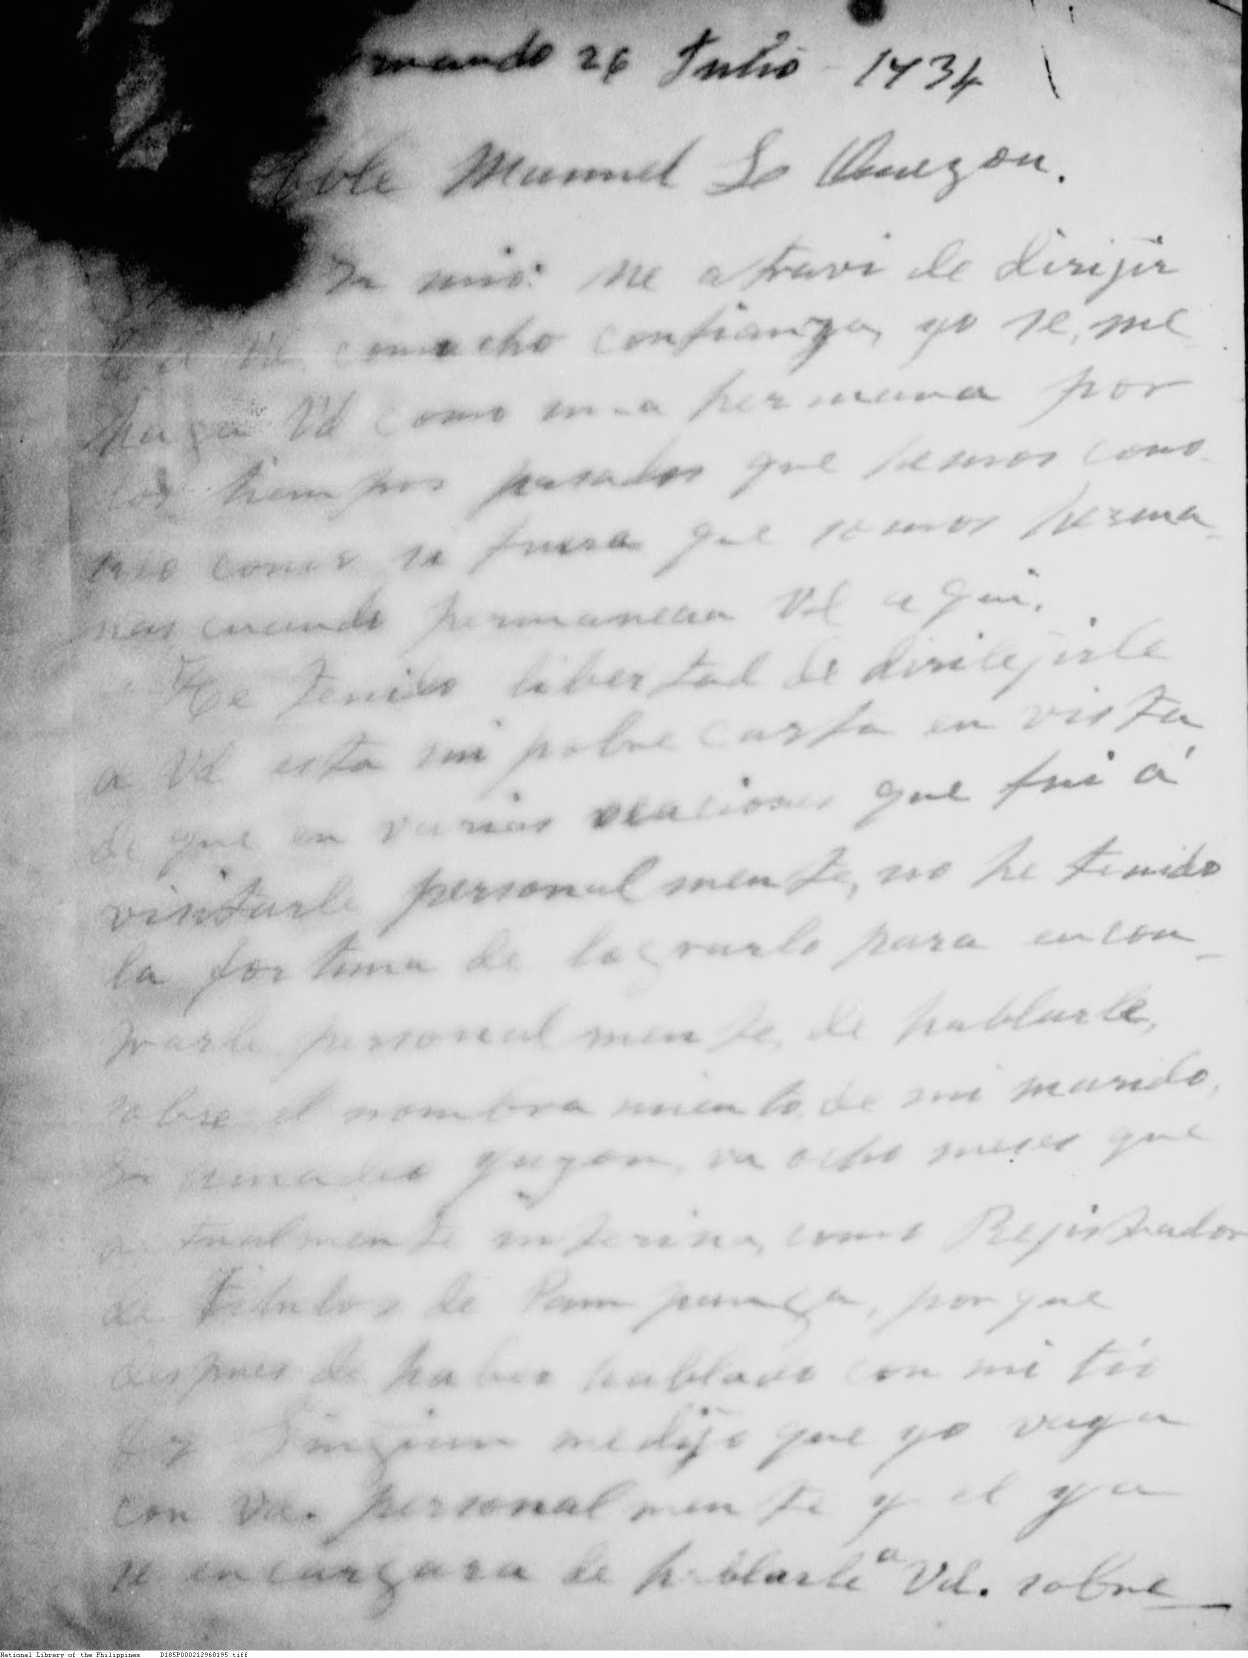 rnando 26 Julio - 1934
ble Manuel L Quezon.
Sr mio: Me atravi de dirijir
a Vd. con mucha confianza, yo se, me
haga Vd como una hermana por
los tiempos pasados que hemos cono-
como si fuera que somos herma-
nas cuando permanecia Vd aqui.
He tenido libertad de dirilejirle
a Vd esta mi pobre carta en vista
de que en varias ocaciones que fui á
visitarle personalmente, no he tenido
la fortuna de lograrlo para encon-
trarle personalmente, de hablarle,
sobre el nombramiento de mi marido,
Sr Amadeo Yuzon, va ocho meses que
actualmente interina, como Rejistrador
de Titulos de Pampanga, porque
despues de haber hablado con mi tio
Singian me dijo que yo vaya
con Vd. personalmente y el ya
se encargara de hablarle a Vd. sobre
National Library of the Philippines D185P000212960195.tiff